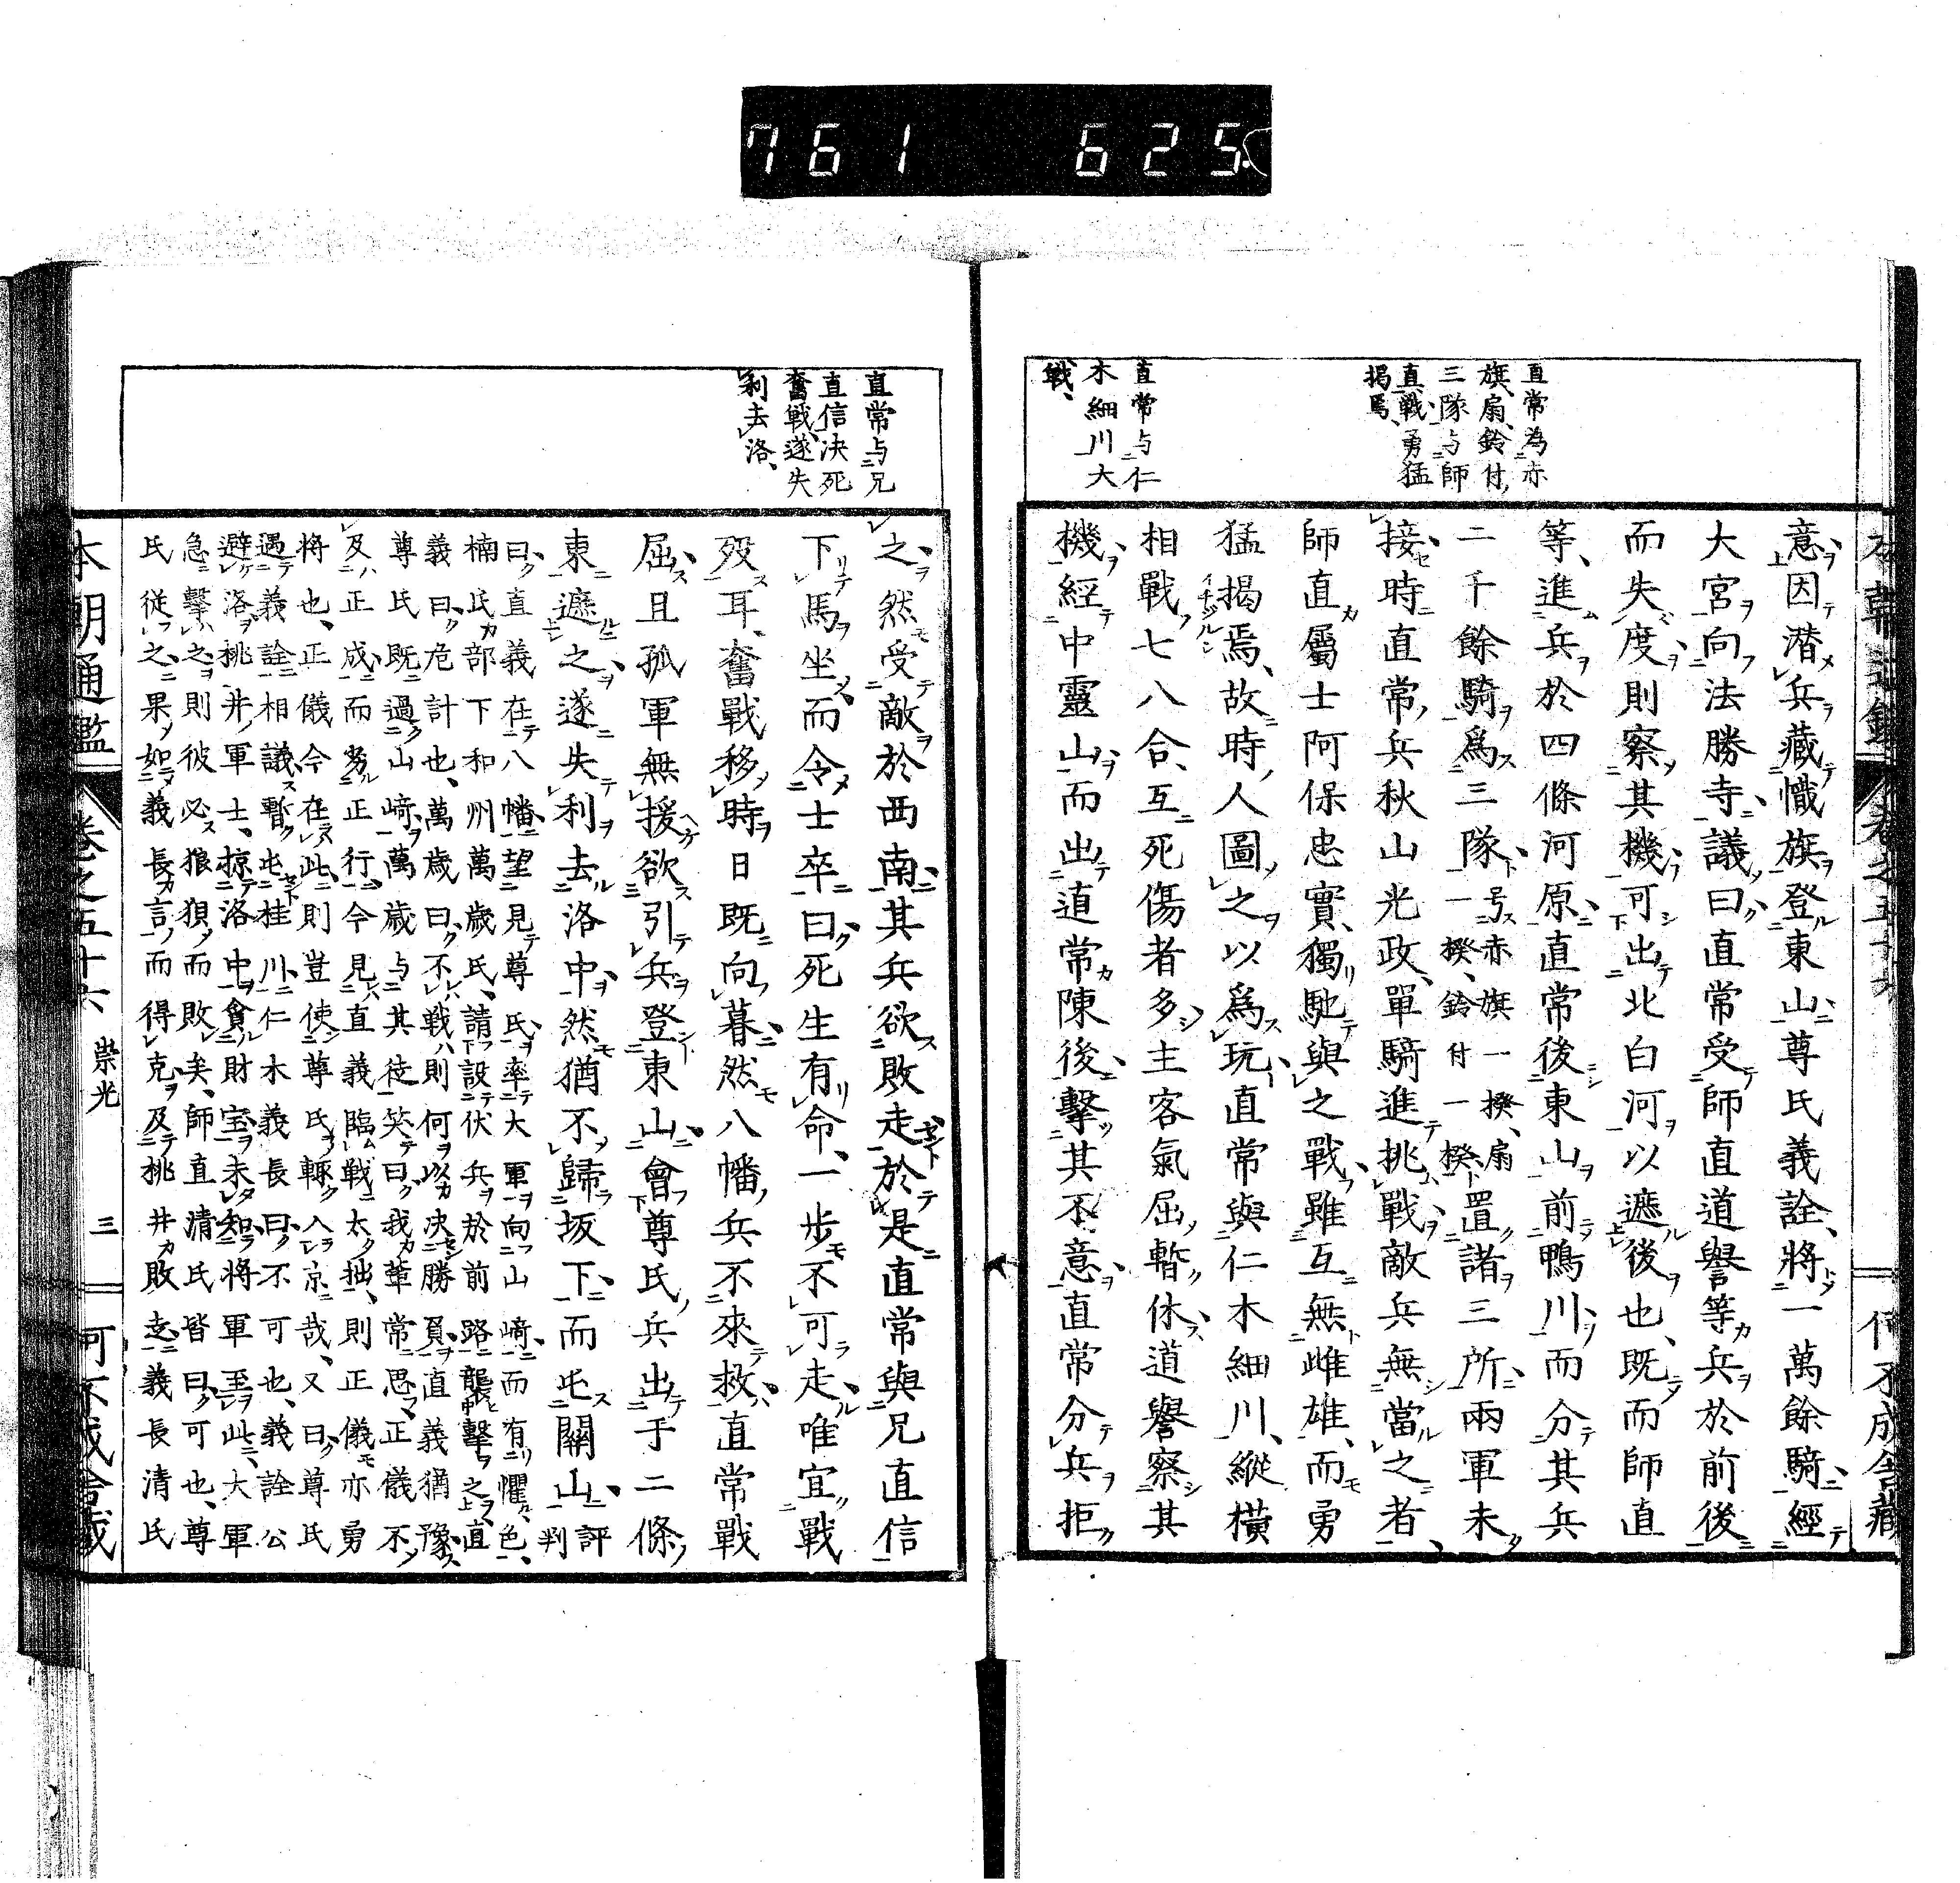 761 625
本朝通鑑 卷之五十六 何不成舍藏
直常為赤
旗、扇、鈴付、
三隊与師
直戰、勇猛
揭焉、
直常与仁
木細川大
戰、
意因潜兵藏幟旗登東山尊氏義詮、將一萬餘騎經
大宮向法勝寺議曰直常受師直道譽等兵於前後
而失度則察其機可出北白河以遮後也、既而師直
等、進兵於四條河原直常後東山前鴨川而分其兵
二千餘騎爲三隊一号赤旗一揆、扇一揆、鈴付一揆置諸三所兩軍未
接時直常兵秋山光政、單騎進挑戰敵兵無當之者、
師直屬士阿保忠實、獨馳與之戰雖互無雌雄、而勇
猛揭焉、故時人圖之以爲玩直常與仁木細川、縱橫
相戰七八合、互死傷者多主客氣屈暫休道譽察其
機經中靈山而出道常陳後擊其不意直常分兵拒
直常与兄
直信決死
奮戰、遂失
利去洛、
之然受敵於西南其兵欲敗走於是直常與兄直信
下馬坐而令士卒曰死生有命、一步不可走唯宜戰
歿耳、奮戰移時日既向暮然八幡兵不來救直常戰
屈且孤軍無援欲引兵登東山會尊氏兵出于二條
東遮之遂失利去洛中然猶不歸坂下而屯關山評判
曰直義在八幡望見尊氏率大軍向山崎而有懼色、
楠氏部下和州萬歲氏、請設伏兵於前路襲擊之直
義曰危計也、萬歲曰不戰則何以決勝負直義猶豫
尊氏既過山崎萬歲与其徒笑曰我輩常思正儀不
及正成而劣正行今見直義臨戰太拙、則正儀亦勇
將也、正儀今在此則豈使尊氏輙入京哉、又曰尊氏
遇義詮相議暫屯桂川仁木義長曰不可也、義詮公
避洛桃井軍士、掠洛中貪財宝未知將軍至此、大軍
急擊之則彼必狼狽而敗矣、師直清氏皆曰可也、尊
氏從之果如義長言而得克及桃井敗走義長清氏
本朝通鑑 卷之五十六 崇光 三 何不成舍藏